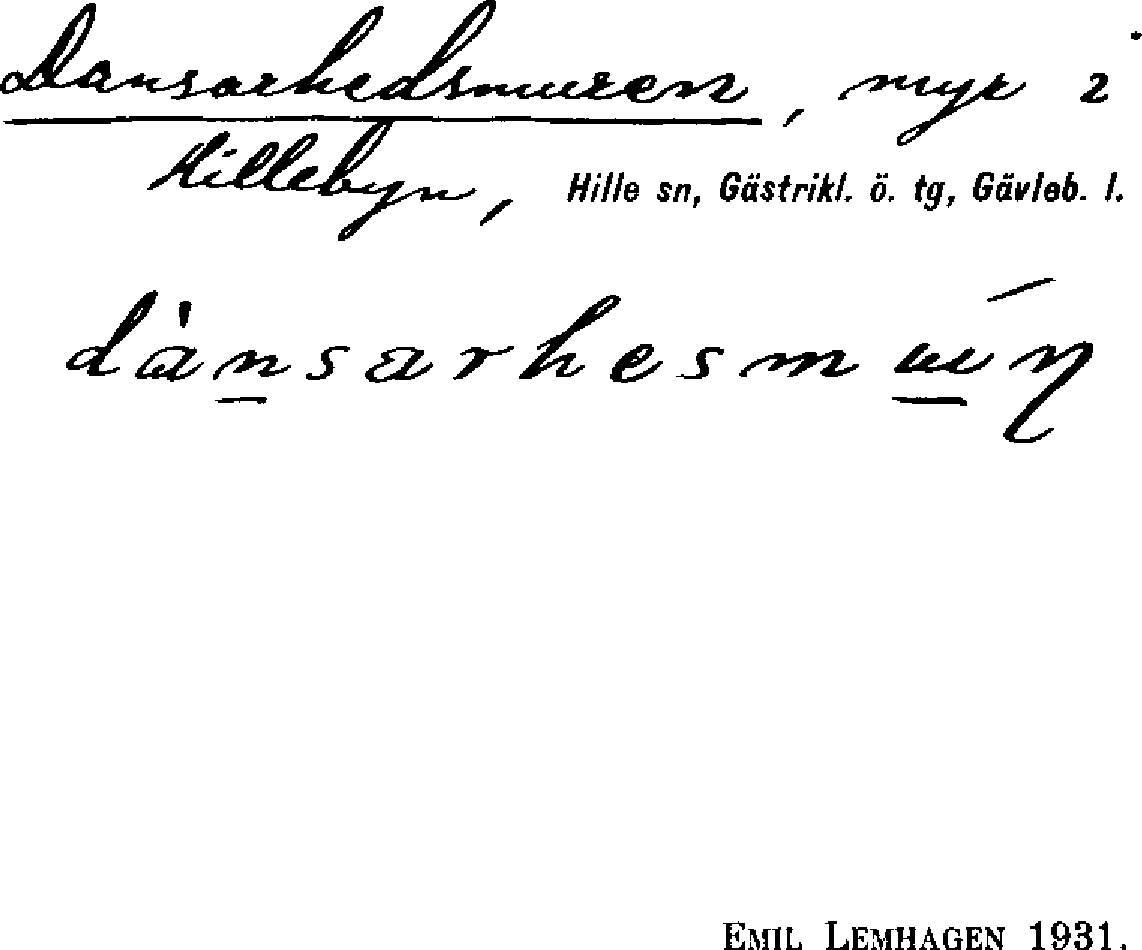 Dansarhedsmuren, myr i
Hillebyn, Hille sn, Gästrikl. ö. tg, Gävleb. l.
dànsarhesmúɳ
EMIL LEMHAGEN 1931.